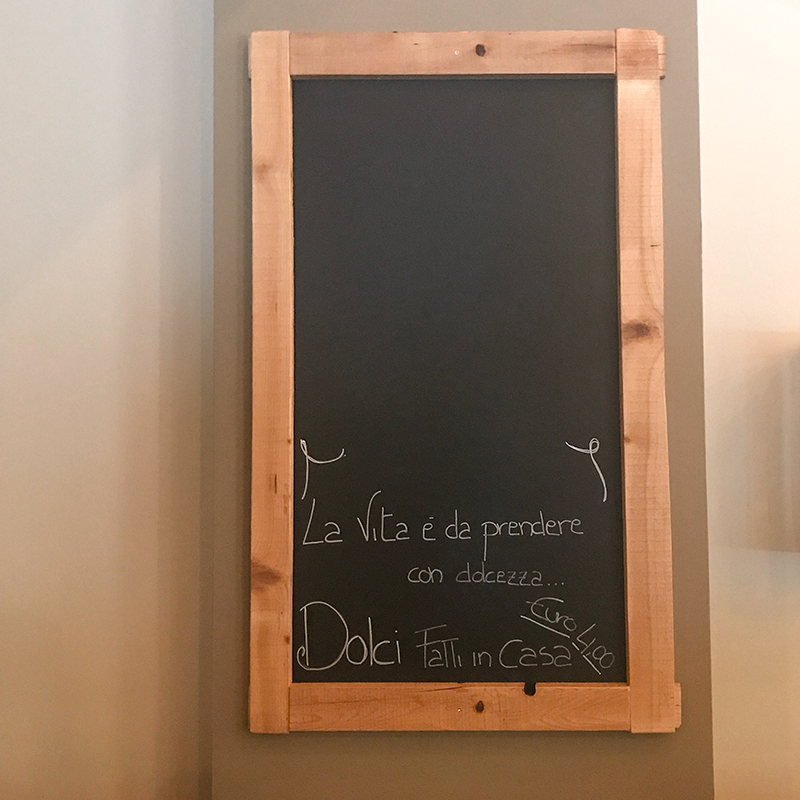 La Vita è da prendere
con dolcezza...
Dolci Fatti in Casa
Euro 4,00